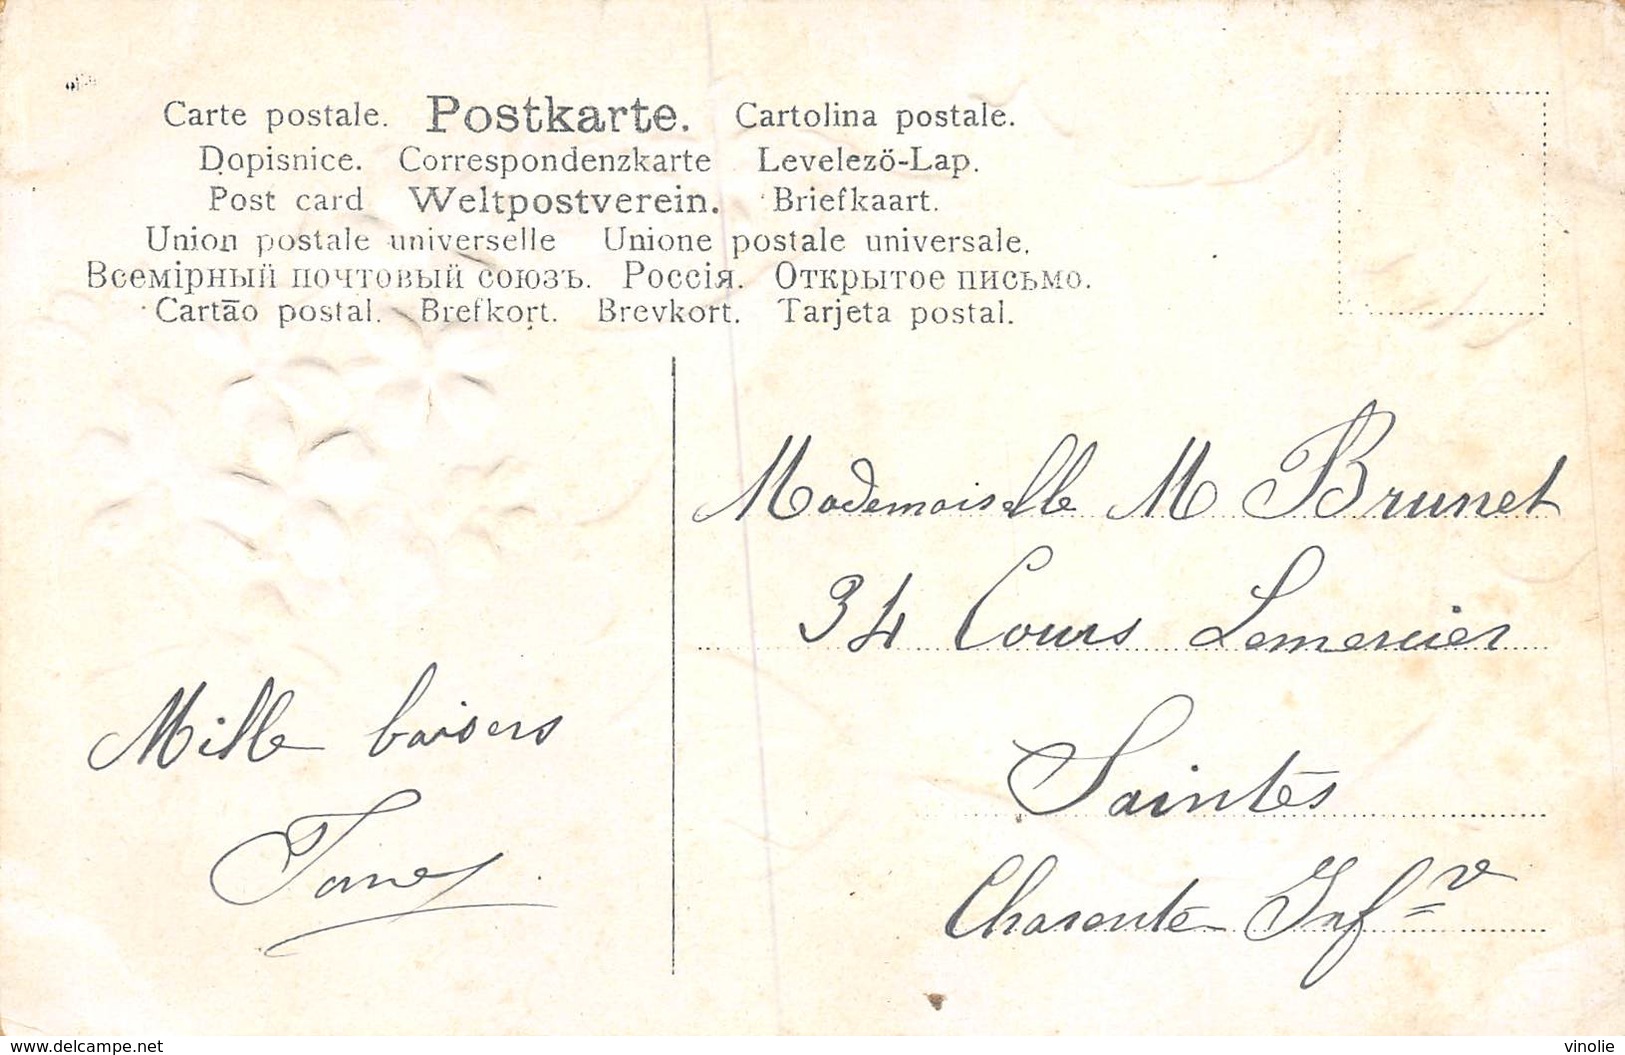 Carte postale. Postkarte. Cartolina postale.
Dopisnice. Correspondenzkarte Levelezö-Lap.
Post card Weltpostverein. Briefkaart.
Union postale universelle Unione postale universale.
Всемірный почтовый союзъ. Россія. Открытое письмо.
Cartão postal. Brefkort. Brevkort. Tarjeta postal.
Mademoiselle M Brunet
34 Cours Lemercier
Saintes
Charente Infre
Mille baisers
www.delcampe.net
vinolie